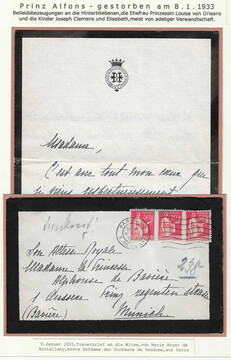 Prinz Alfons - gestorben am 8.1.1933
Beileidsbezeugungen an die Hinterbliebenen, die Ehefrau Prinzessin Louise von Orleans
und die Kinder Joseph Clemens und Elisabeth, meist von adeliger Verwandschaft.
Madame,
C'est avec tout mon cœur que
je viens respectueusement
Son Altesse Royale
Madame la Princesse
Alphonse de Bavière
1 regenten strasse
(Bavière) Munich
230
.Januar 1933, Trauerbrief an die Witwe, von Marie
erste Hofdame der Duchesse de Vendome, aus Paris